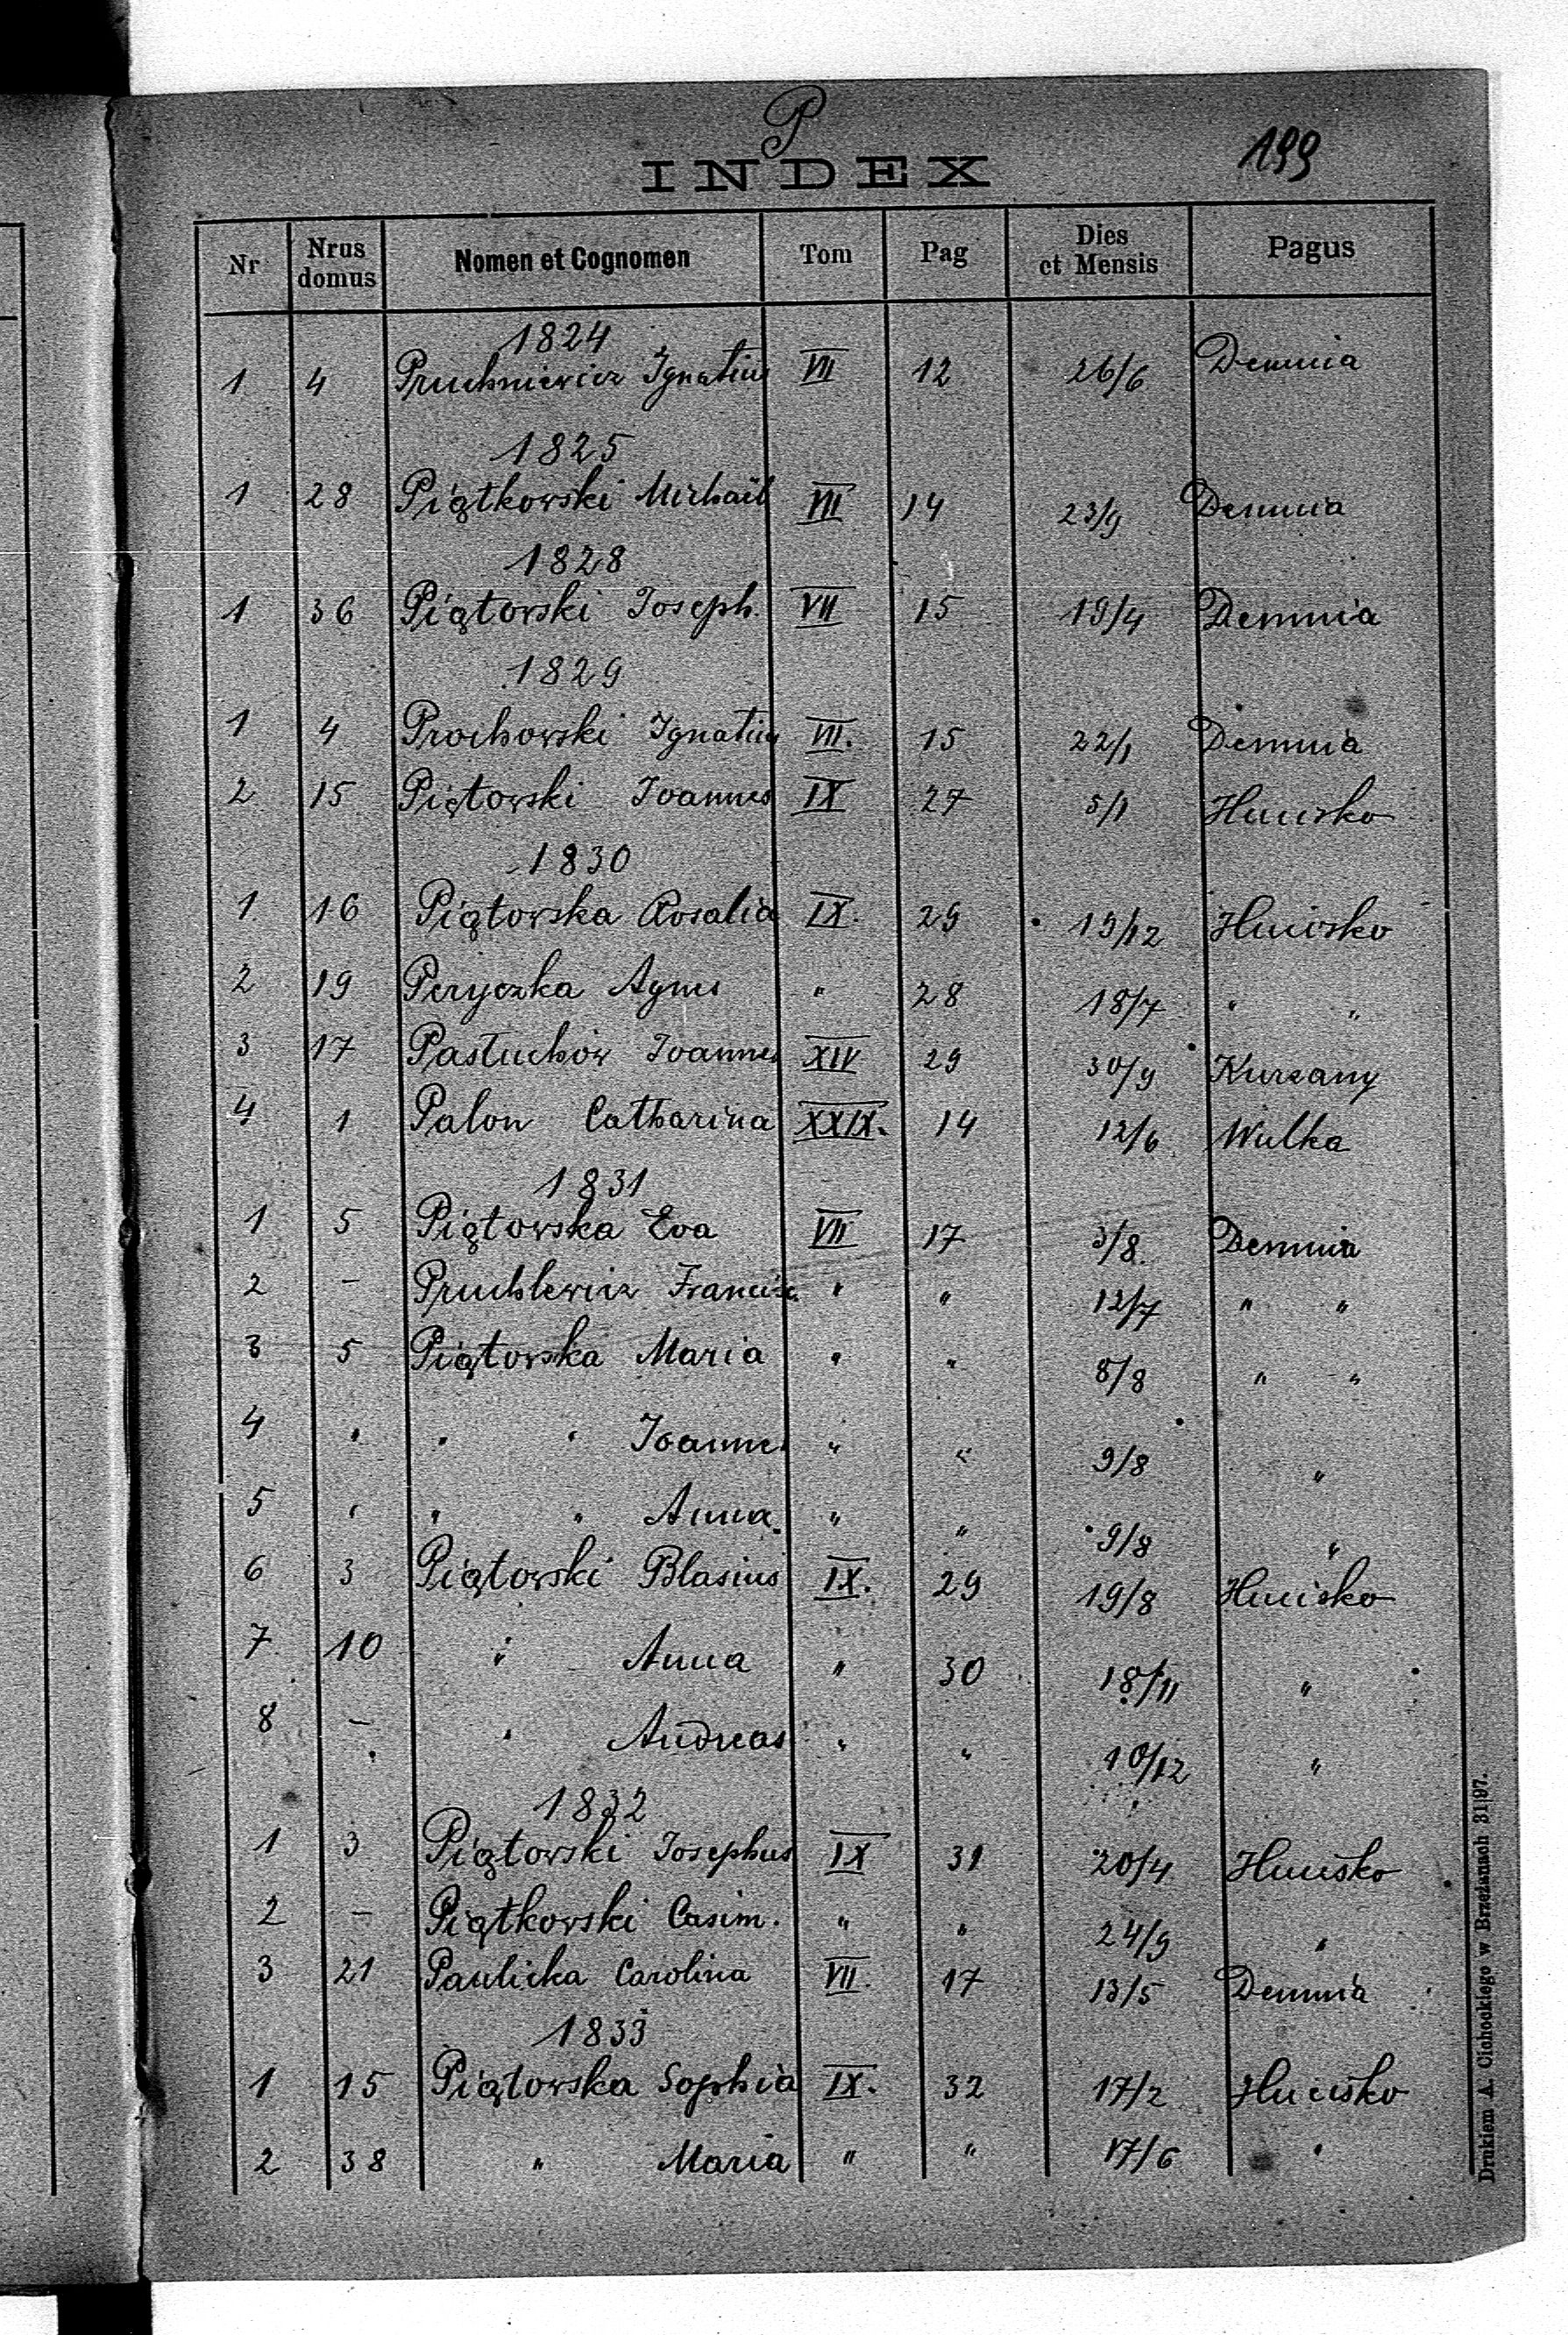 P
INDEX
199
Nr | Nrus domus | Nomen et Cognomen | Tom | Pag | Dies et Mensis | Pagus
1824
1 | 4 | Pruchniewicz Ignatius | VII | 12 | 26/6 | Demnia
1825
1 | 28 | Piątkowski Michaël | VII | 14 | 23/9 | Demnia
1828
1 | 36 | Piątowski Joseph. | VII | 15 | 19/4 | Demnia
1829
1 | 4 | Prochowski Ignatius | VII. | 15 | 22/1 | Demnia
2 | 15 | Piątowski Joannes | IX | 27 | 5/1 | Hucisko
1830
1 | 16 | Piątowska Rosalia | IX. | 29 | 19/12 | Hucisko
2 | 19 | Peryczka Agnes | " | 28 | 18/7 | " "
3 | 17 | Pastuchów Joannes | XIV | 29 | 30/9 | Kurzany
4 | 1 | Palon Catharina | XXIX. | 14 | 12/6 | Wulka
1831
1 | 5 | Piątowska Eva | VII | 17 | 3/8 | Demnia
2 | – | Pruchlewicz Francisc. | " | " | 12/7 | " "
3 | 5 | Piątowska Maria | " | " | 8/8 | " "
4 | " | " " Joannes | " | " | 9/8 | "
5 | " | " " Anna. | " | " | 9/8 | "
6 | 3 | Piątowski Blasius | IX. | 29 | 19/8 | Hucisko
7 | 10 | " Anna | " | 30 | 18/11 | "
8 | – | " Andreas | " | " | 10/12 | "
1832
1 | 3 | Piątowski Josephus | IX | 31 | 20/4 | Hucisko
2 | – | Piątkowski Casim. | " | " | 24/9 | "
3 | 21 | Paulicka Carolina | VII. | 17 | 13/5 | Demnia
1833
1 | 15 | Piątowska Sophia | IX. | 32 | 17/2 | Hucisko
2 | 38 | " Maria | " | " | 17/6 | "
Drukiem A. Cichockiego w Brzeżanach 3197.